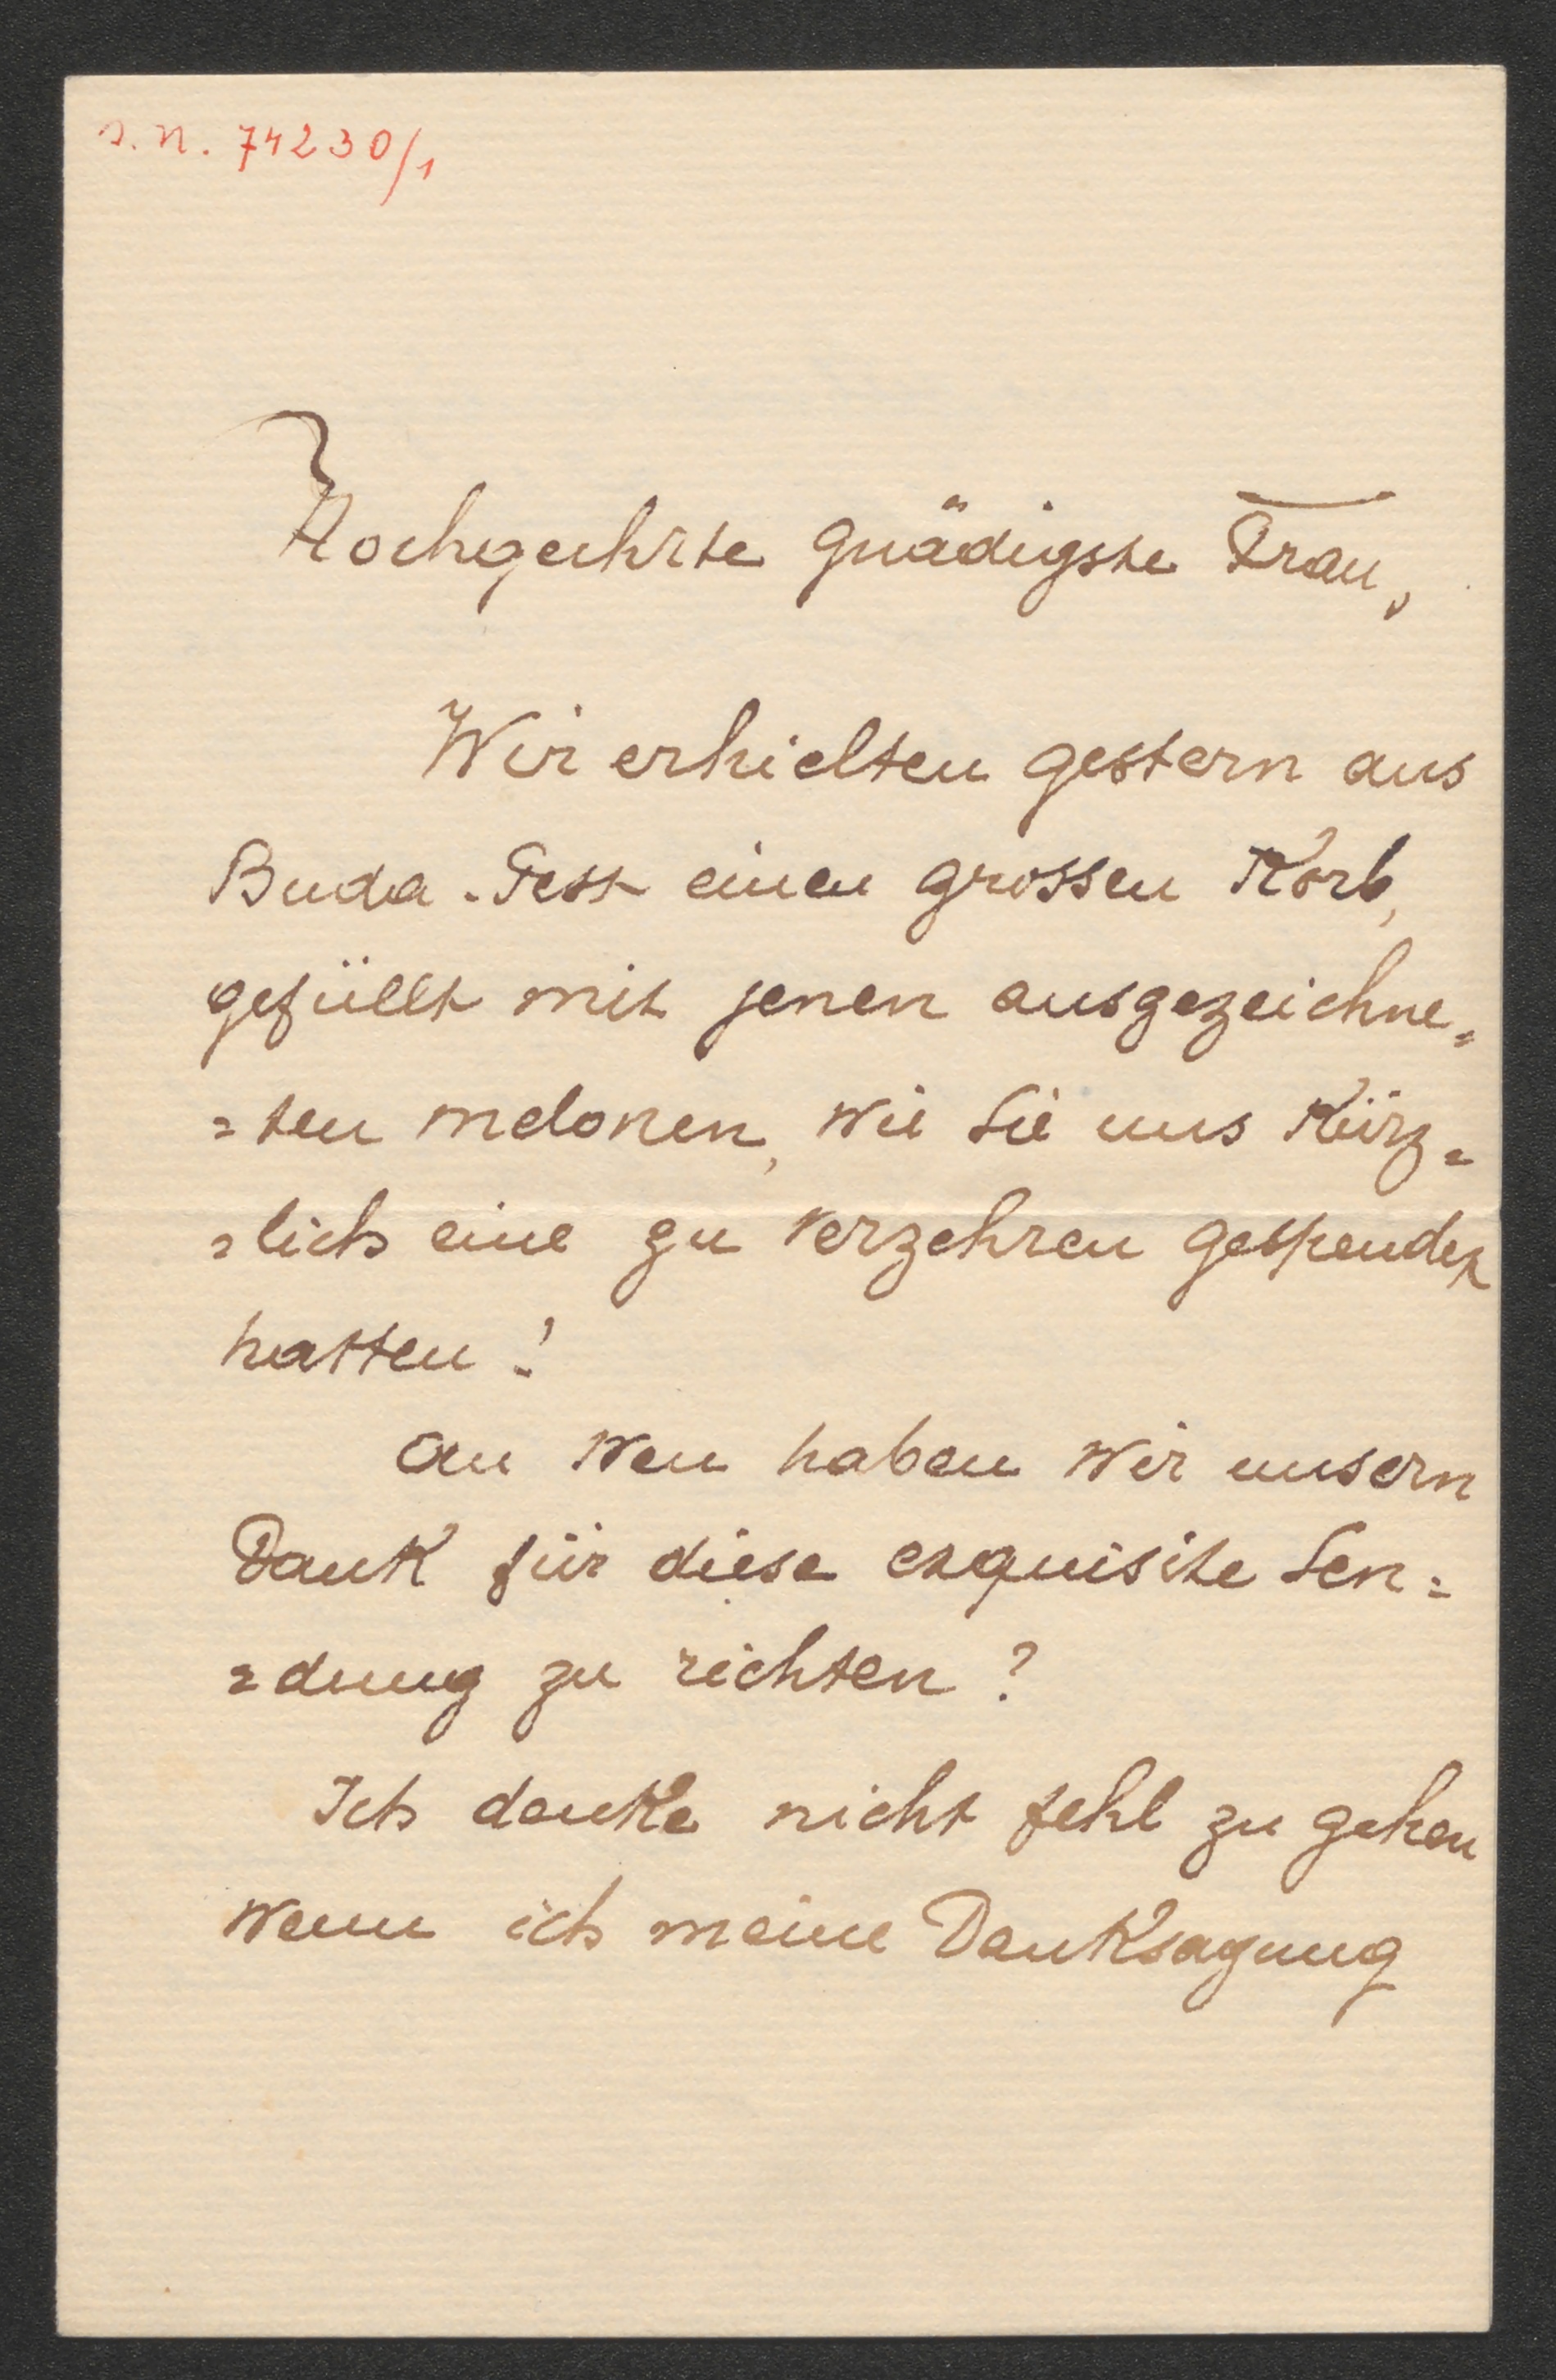 I. N. 74230/1
Hochgeehrte gnädigste Frau,
Wir erhielten gestern aus
Buda-Pest einen grossen Korb,
gefüllt mit jenen ausgezeichne=
=ten Melonen, wie Sie uns kürz=
=lich eine zu verzehren gespendet
hatten!
An wen haben wir unsern
Dank für diese exquisite Sen=
=dung zu richten?
Ich denke nicht fehl zu gehen
wenn ich meine Danksagung